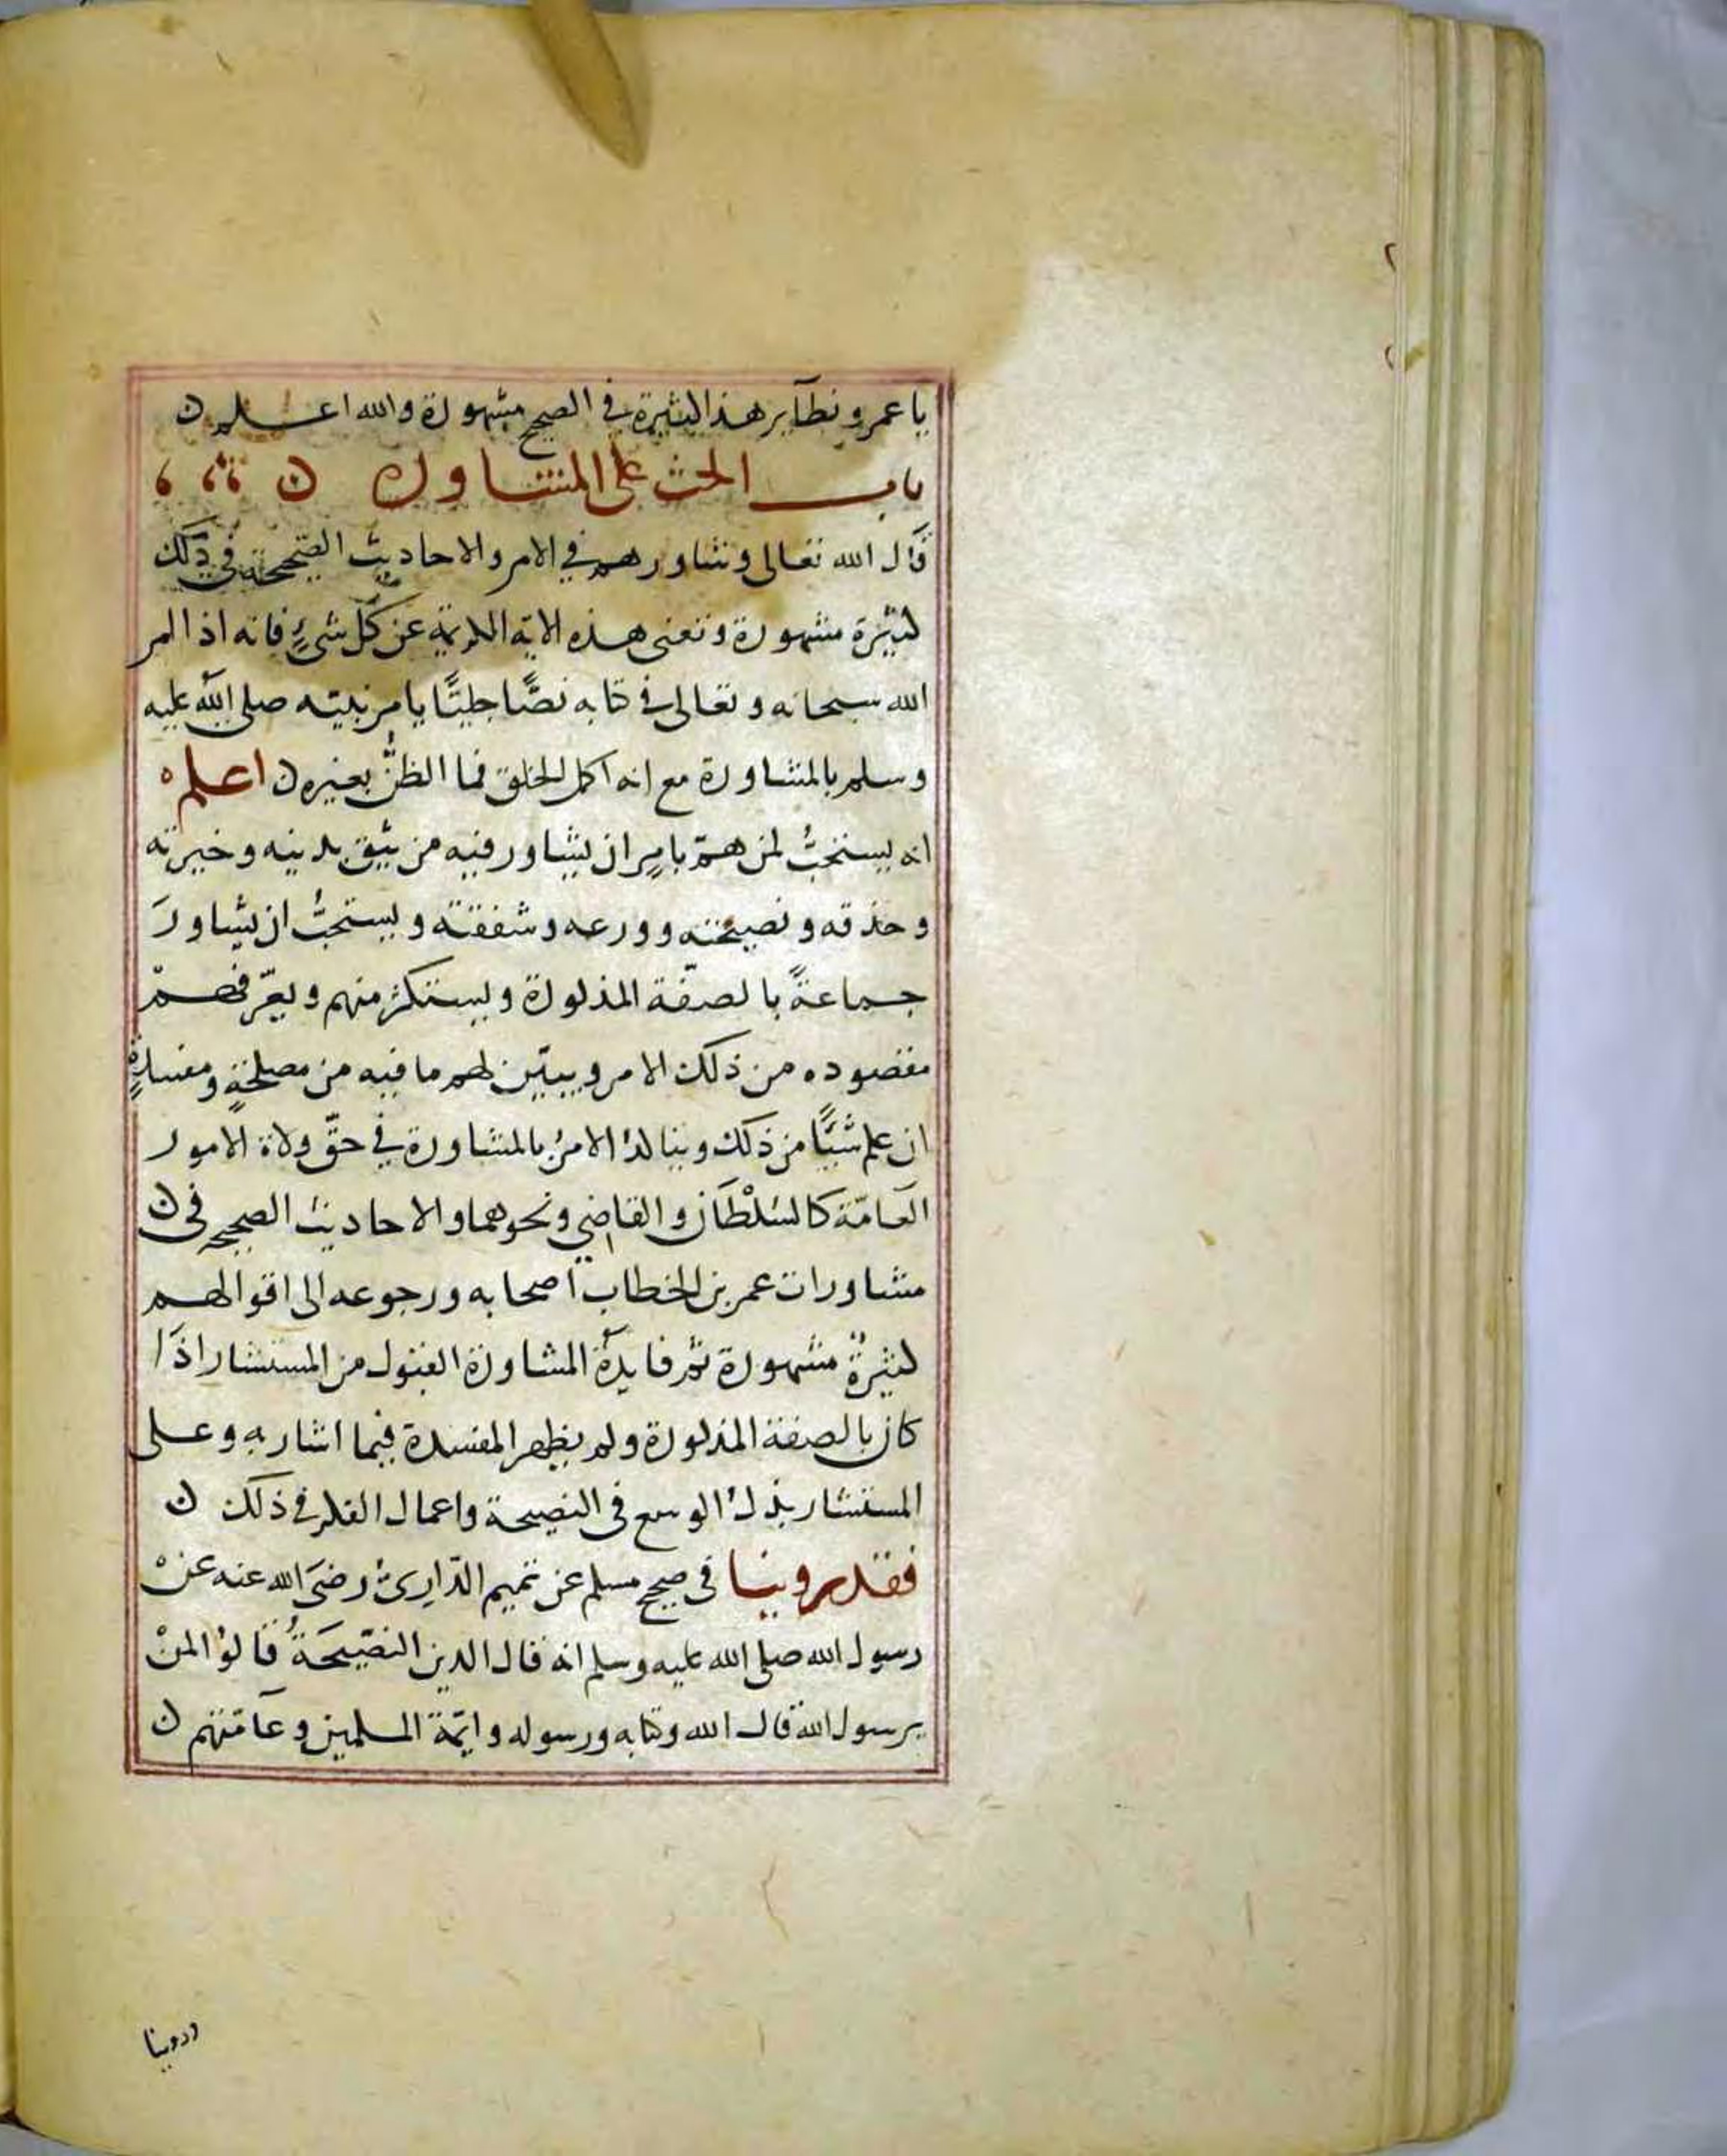 يا عمرو نظآير هذا كثيرة في الصحيح مشهورة والله اعلم ن
باب الحث على المشاورة ن
قال الله تعالى وشاورهم في الامر والاحاديث الصحيحة في ذلك
كثيرة مشهورة وتغنى هذه الاية الكريمة عن كل شيءٍ فانه اذا امر
الله سبحانه وتعالى في كتابه نصًّا جليًّا يامر نبيه صلى الله عليه
وسلم بالمشاورة مع انه اكمل الخلق فما الظنُّ بغيره ن اعلم ه
انه يستحبُّ لمن همّ بامرٍ ان يشاور فيه من يثق بدينه وخبرته
وحذقه ونصيحته وورعه وشفقته ويستحبُّ ان يشاورَ
جماعةً بالصفة المذكورة ويستكثر منهم ويعرّفهمْ
مقصوده من ذلك الامر ويبيّن لهم ما فيه من مصلحةٍ ومفسدةٍ
ان علم شيًا من ذلك ويتاكدُ الامرُ بالمشاورة في حقّ ولاة الامور
العامّة كالسُلْطَان والقاضي ونحوهما والاحاديث الصحيحه في ن
مشاورات عمر بن الخطاب اصحابه ورجوعه الى اقوالهم
كثيرةٌ مشهورة ثم فايدة المشاورة القبول من المستشار اذَا
كان بالصفة المذكورة ولم يظهر المفسدة فيما اشار به وعلى
المستشار بذلُ الوسع في النصيحة واعمال الفكر في ذلك ن
فقد روينا في صحيح مسلم عن تميم الدّاريّ رضىَ الله عنه عنْ
رسول الله صلى الله عليه وسلم انه قال الدين النصّيحَةُ قالوُا لمنْ
يرسول الله قال لله وكتابه ورسوله وايمّة المسلمين وعامّتهم ن
وروينا